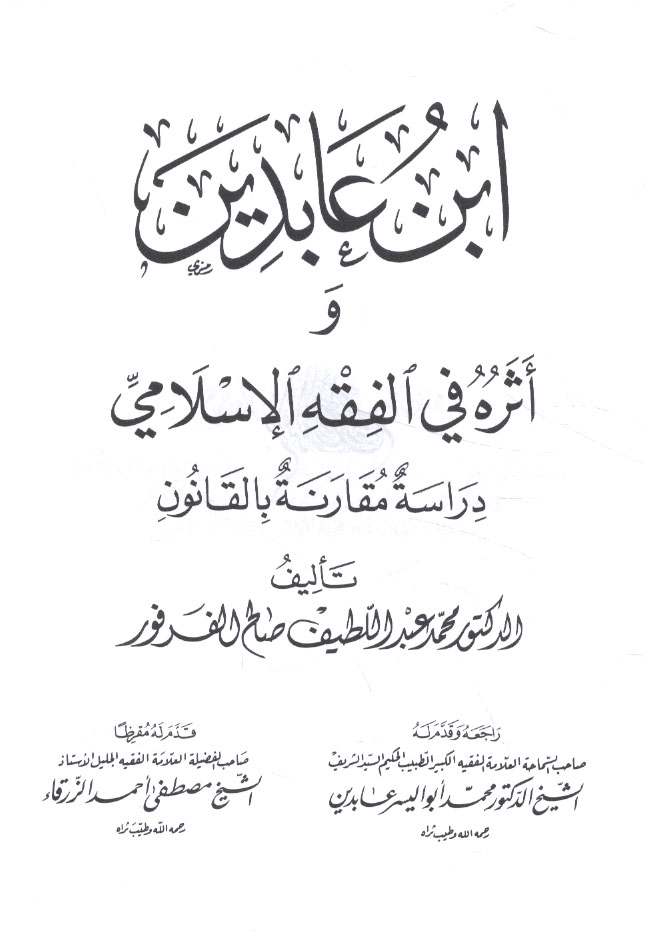 ابنُ عَابدِين
رمزي
وَ
أَثَرُهُ في الفِقْهِ الإسْلَامِيِّ
دِرَاسَةٌ مُقَارَنَةٌ بِالقَانُونِ
تَأليفُ
الدكتور محمد عبد اللطيف صالح الفرفور
رَاجَعَهُ وَقَدَّمَ لَهُ
صاحب السّماحة العلامة الفقيه الكبير الطبيب الحكيم السيّد الشريف
الشّيخ الدكتور محمّد أبو اليسر عابدين
رحمه الله وطيب ثراه
قَدَّمَ لَهُ مُقَرِّظًا
صَاحب الفضيلة العلّامة الفقيه الجليل الأستاذ
الشّيخ مصطفى أحمد الزّرقاء
رحمه الله وطيّب ثراه